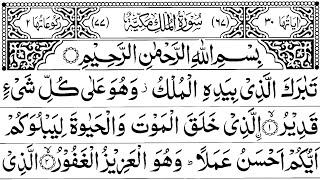 اٰيَاتُهَا ٣٠ (٦٧) سُوْرَةُ الْمُلْكِ مَكِّيَّةٌ (٧٧) رُكُوْعَاتُهَا ٢
بِسْمِ اللّٰهِ الرَّحْمٰنِ الرَّحِيْمِ
تَبٰرَكَ الَّذِىْ بِيَدِهِ الْمُلْكُ ز وَهُوَ عَلٰى كُلِّ شَىْءٍ
قَدِيْرُ ۙ﴿١﴾ اۨلَّذِىْ خَلَقَ الْمَوْتَ وَالْحَيٰوةَ لِيَبْلُوَكُمْ
اَيُّكُمْ اَحْسَنُ عَمَلًا ؕ وَهُوَ الْعَزِيْزُ الْغَفُوْرُ ۙ﴿٢﴾ الَّذِىْ